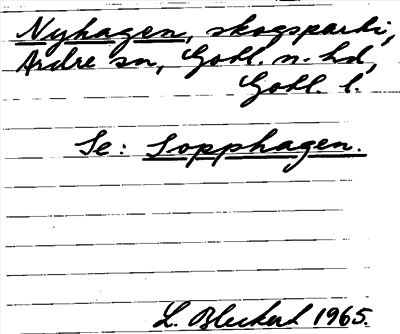 Nyhagen, skogsparti,
Ardre sn, Gotl. n. hd,
Gotl. l.
Se: Sopphagen.
L. Bleckert 1965.